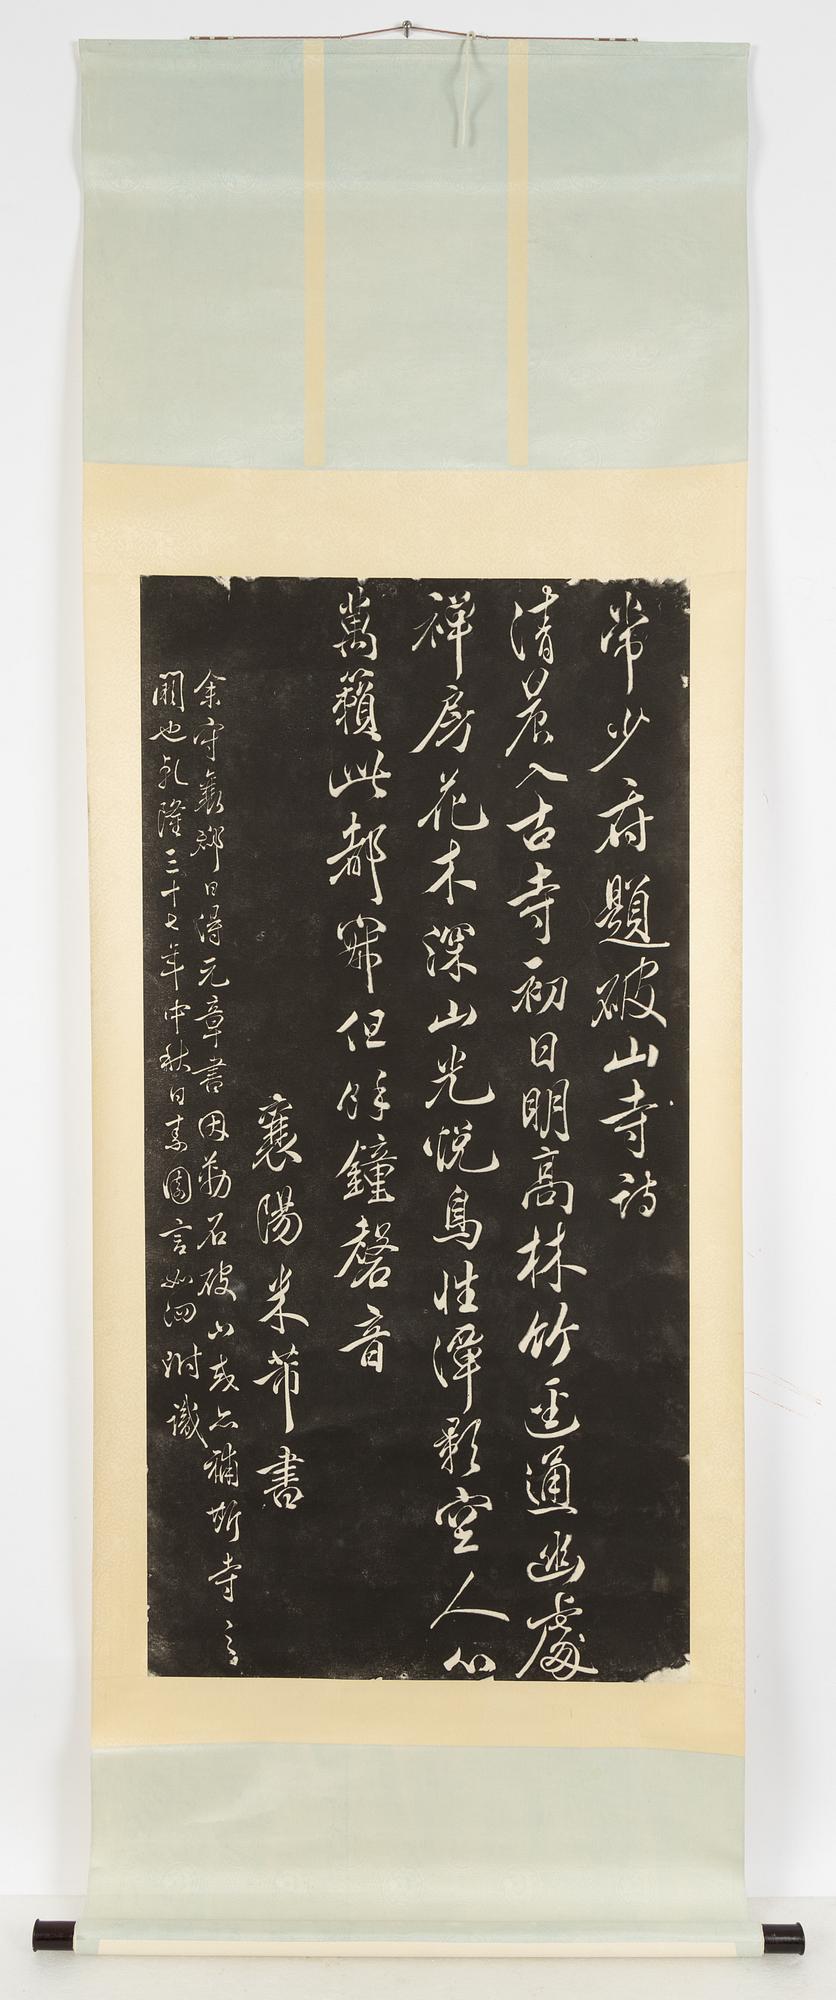 常少府題破山寺詩
清晨入古寺初日明高林竹迳通幽處
禪房花木深山光悦鳥性潭影空人心
萬籟此都寂但餘鐘磬音
襄陽米芾書
余守襄郡日得元章書因勒石破山或亦補斯寺之
闕也乾隆三十七年中秋日素園言如泗附識